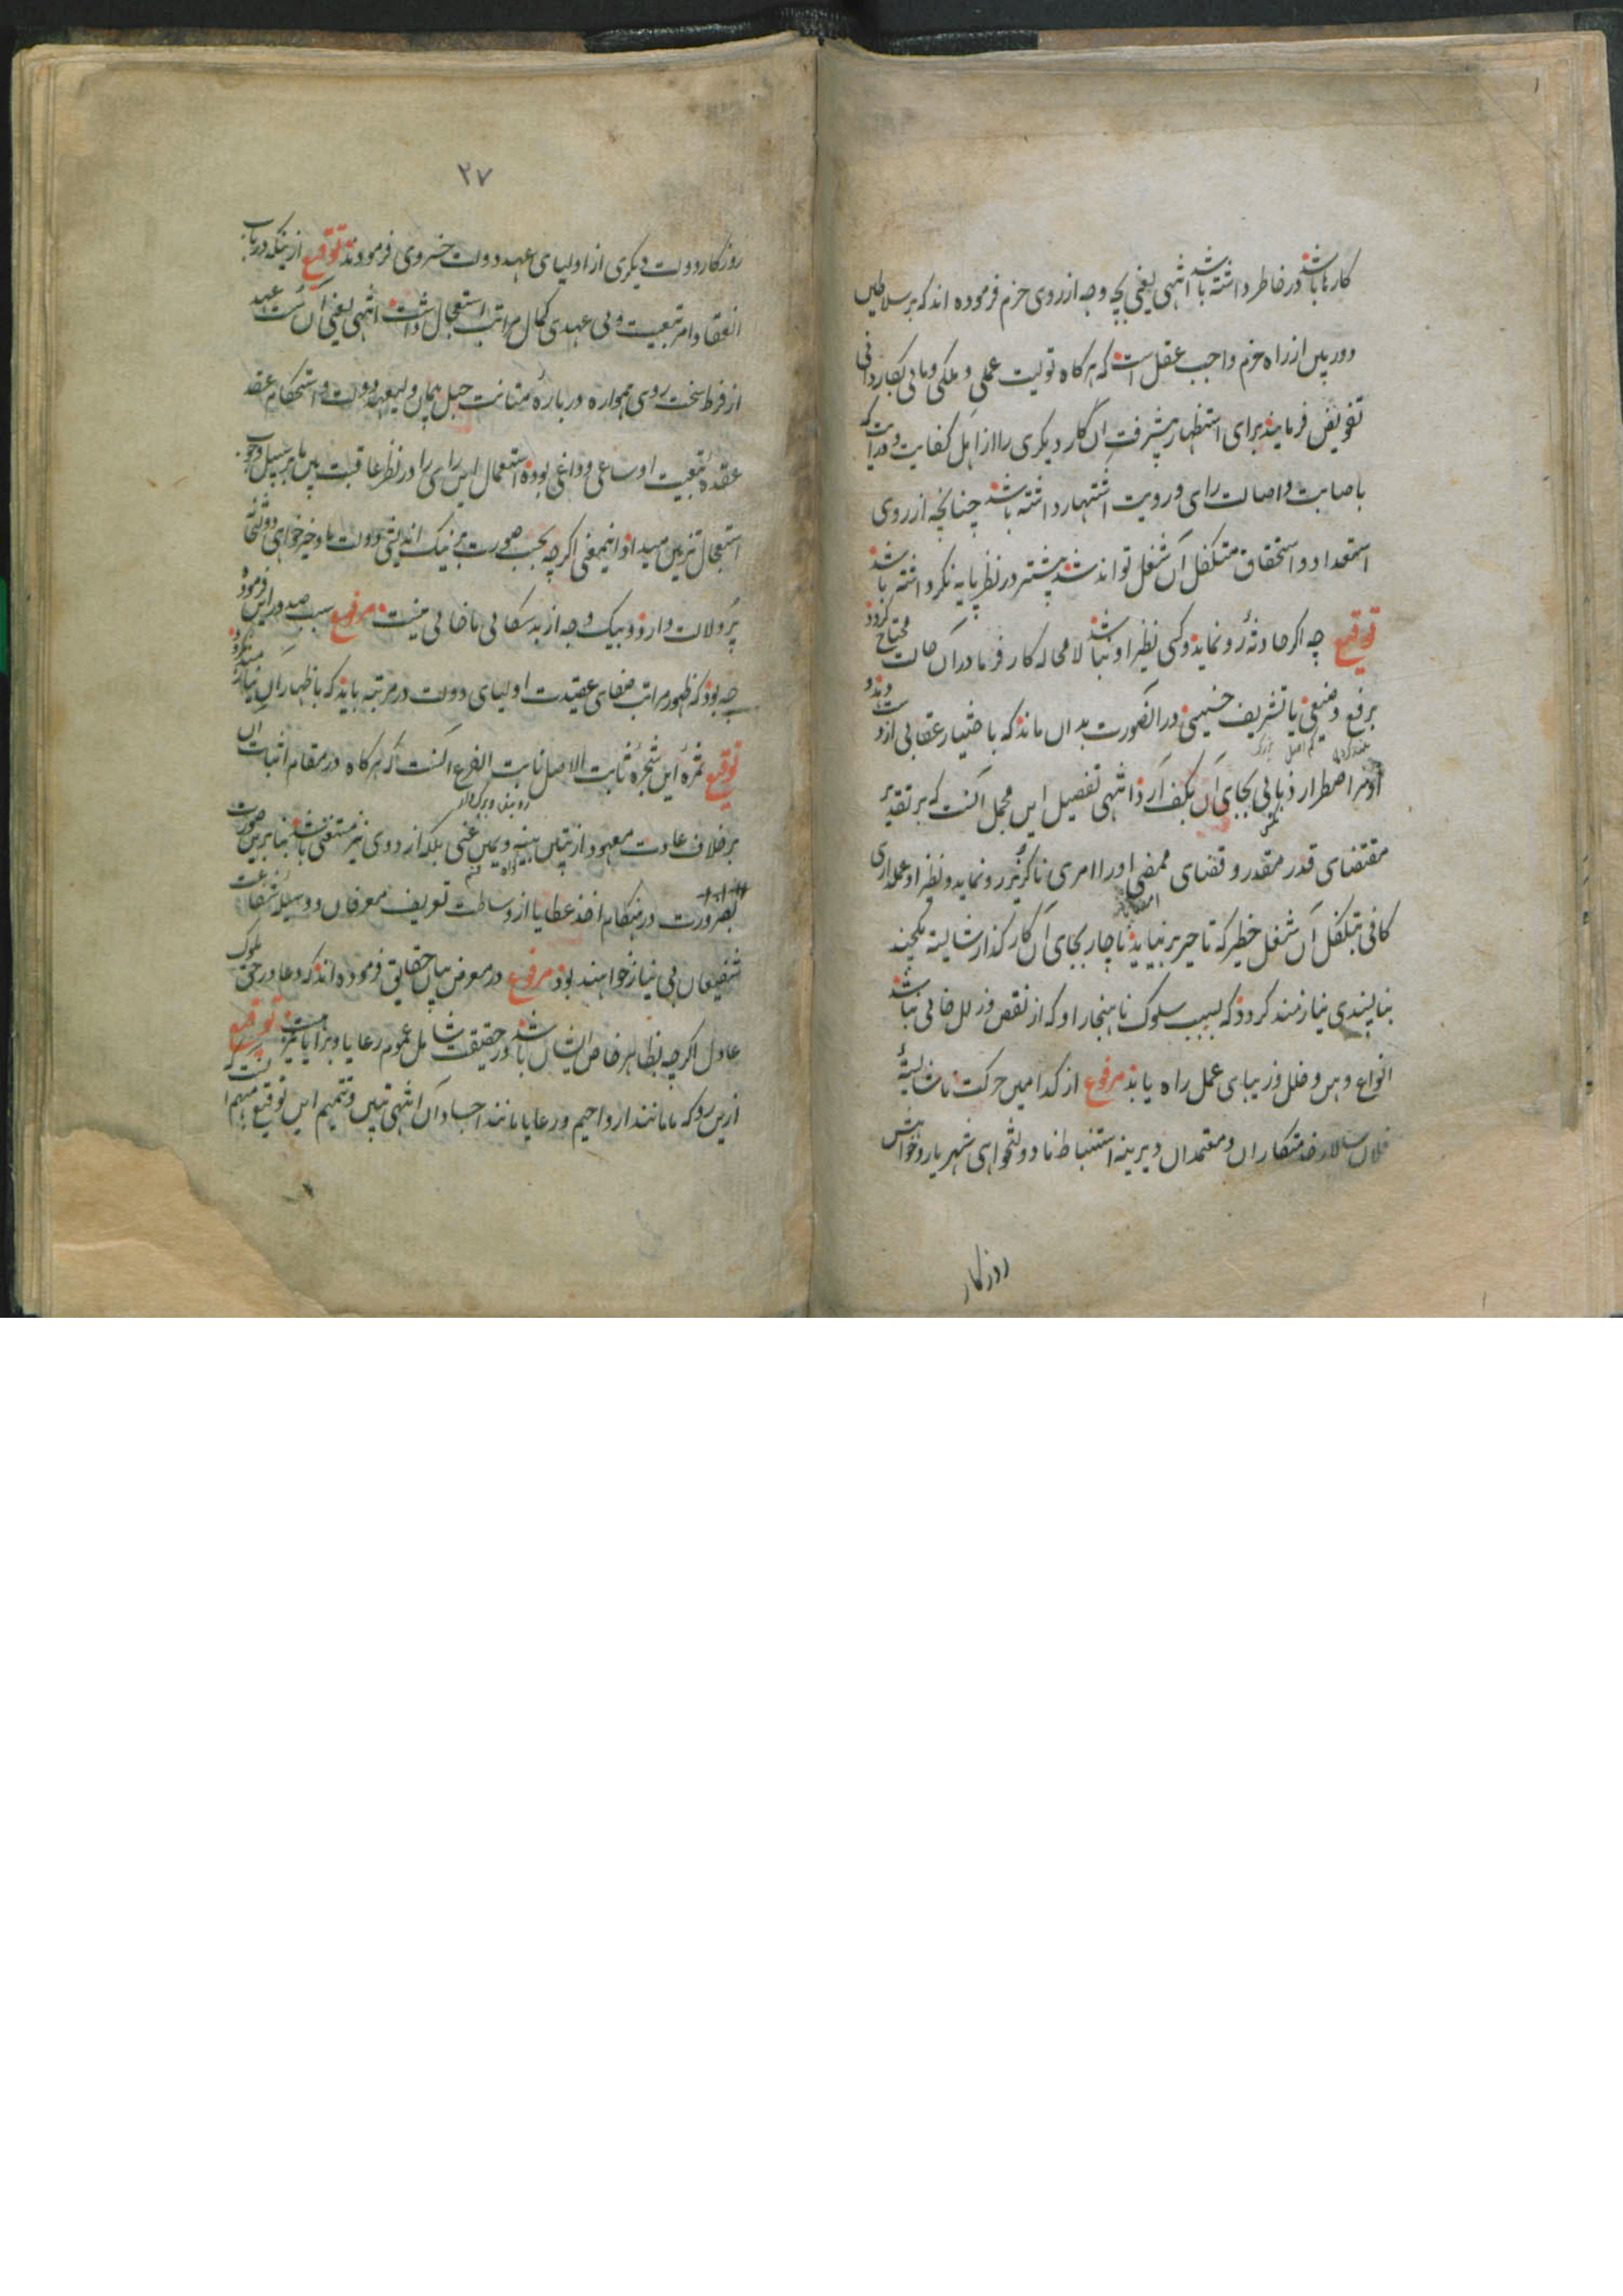 کارها باشد در خاطر داشته باشد انتهی یعنی بچه وجه از روی حزم فرموده اند که بر سلاطین
دوربین از راه حزم واجب عقل است که هر کاه تولیت عملی و ملکی و مالی بکاردانی
تفویض فرمایند برای استظهار پیشرفت آن کار دیکری را از اهل کفایت و درایت که
باصابت و اصالت رای و رویت اشتهار داشته باشد چنانچه از روی
استعداد و استحقاق متکفل آن شغل تواند شد پیشتر در نظر باشد
توقیع چه اکر حادثهٔ رو نماید و کسی نظیر او نباشد لا محاله کارفرما در آن حالت محتاج کردد
برفع وضیعی یا تشریف خسیسی در آنصورت بدان ماند که باختیار عقابی از
او مر اضطرار ذبابی بجای آن بکف آرد انتهی تفصیل این مجمل آنست که بر تقدیر
مقتضای قدر مقدر و قضای ممضی او را امری ناکزیر رو نماید و نظیر او عملداری
کافی بتکفل آن شغل خطیر که تاخیر برنیاید ناچار بجای آن کار کذار شایسته
بناپسندی نیازمند کردد که بسبب سلوک ناهنجار او که از نقص و زلل خالی نباشد
انواع وهن و خلل در بنای عمل راه یابد مرفوع از کدامین حرکت ناشایستهٔ
فلان سالار خدمتکاران و معتمدان دیرینه استنباط نادولتخواهی شهریار و خواهش
روزکار
۲۷
روزکار دولت دیکری از اولیای عهد دولت خسروی فرمودند توقیع از اینکه در باب
انعقاد امر تبعیت ولی عهدی کمال مراتب استعجال داشت انتهی یعنی آن
از فرط سخت روی همواره در بارهٔ متانت حبل پیمان ولیعهد دولت و استحکام عقد
عقدهٔ تبعیت او ساعی و داعی بوده استعمال این رای را در نظر عاقبت بین ما بر سبیل وجوب
استعجال تزیین میداد و اینمعنی اکرچه بحسب صورت بر نیک اندیشی دولت ما و خیرخواهی
دلالت دارد و بیک وجه از بدسکالی ما خالی نیست مرفوع سبب صدور این فرموده
چه بود که ظهور مراتب صفای عقیدت اولیای دولت در مرتبه باید که باظهار آن نیاز
توقیع ثمرهٔ این شجرهٔ ثابت الاصل نابت الفرع آنست که هر کاه در مقام اثبات آن
بر خلاف عادت معهود از تبیین بینه و یمین غنی بلکه از دوی نیز مستغنی باشند بنا برین صورت
بضرورت در هنکام اخذ عطایا از وساطت تعریف معرفان و وسیله شفاعت
شفیعان بی نیاز خواهند بود مرفوع در معرض بیان حقایق فرموده اند که دعا در حق ملوک
عادل اکرچه بظاهر خاص ایشان باشد در حقیقت شامل عموم رعایا و برایاست توقیع
ازین رو که ما مانند ارواحیم و رعایا مانند اجساد آن انتهی تبیین و تتمیم این توقیع